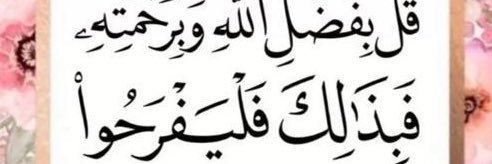 قُلْ بِفَضْلِ اللَّهِ وَبِرَحْمَتِهِۦ
فَبِذَٰلِكَ فَلْيَفْرَحُوا۟